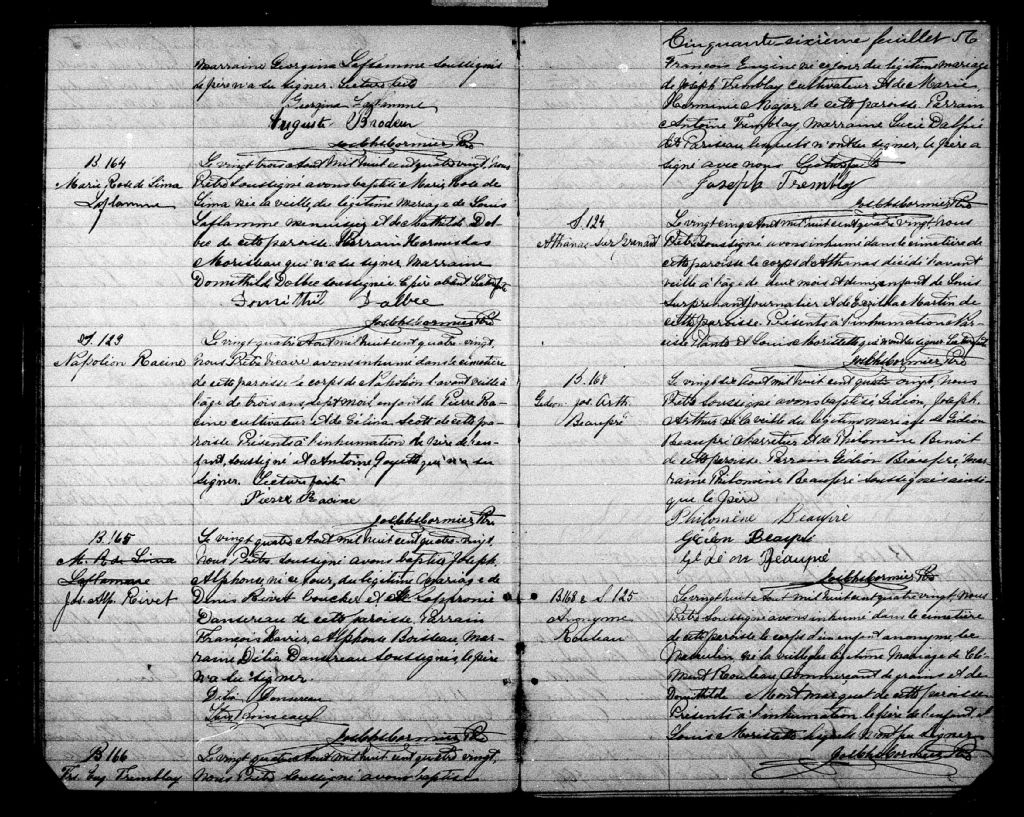 Marraine Georgina Laflamme soussignés
le père n'a su signer. Lecture faite
Georgina Laflamme
Auguste Brodeur
Jos Chs Cormier Ptre
B. 164
Marie Rose de Lima
Laflamme
Le vingt trois Aout mil huit cent quatre vingt, Nous
Prêtre soussigné avons baptisé Marie Rose de
Lima née la veille, du légitime mariage de Louis
Laflamme menuisier et de Mathilde Dal-
bec de cette paroisse. Parrain Hormisdas
Morisseau qui n'a su signer, Marraine
Domithilde Dalbec soussignée le père absent Lecture faite
Domithil Dalbec
Jos Chs Cormier Ptre
S. 123
Napoléon Racine
Le vingt quatre Aout mil huit cent quatre-vingt,
Nous Prêtre Vicaire avons inhumé dans le cimetière
de cette paroisse le corps de Napoléon l'avant veille à
l'age de trois ans, sept mois, enfant de Pierre Ra-
cine cultivateur et de Gélina Scott de cette pa-
roisse. Présents à l'inhumation le père de l'en-
fant, soussigné et Antoine Goyette qui n'a su
signer. Lecture faite
Pierre Racine
Jos Chs Cormier Ptre
B. 165
M. R. de Lima
Laflamme
Jos. Alp. Rivet
Le vingt quatre Aout mil huit cent quatre-vingt,
Nous Prêtre soussigné avons baptisé Joseph
Alphonse, né ce jour, du légitime Mariage de
Denis Rivet boucher et de Sophronie
Dansereau de cette paroisse. Parrain
François Xavier, Alphonse Boisseau, Mar-
raine Délia Dansereau soussignés, le père
n'a su signer.
Délia Dansereau
Boisseau
Jos Chs Cormier Ptre
B 166
Frs. Eug. Tremblay
Le vingt quatre Aout mil huit cent quatre vingt,
Nous Prêtre soussigné avons baptisé
Cinquante sixième feuillet 56
François Eugène né ce jour du légitime mariage
de Joseph Tremblay cultivateur et de Marie
Herminie Major de cette paroisse. Parrain
Antoine Tremblay, Marraine Lucie Dalpé
dit Pariseau lesquels n'ont su signer, le père a
signé avec nous Lecture faite
Joseph Tremblay
Jos Chs Cormier Ptre
S. 124
Athanas Surprenant
Le vingt cinq Aout mil huit cent quatre vingt, Nous
Prêtre soussigné avons inhumé dans le cimetière de
cette paroisse le corps d'Athanas décédé l'avant
veille à l'age de deux mois et demi, enfant de Louis
Surprenant journalier et de Martin de
cette paroisse. Présents à l'inhumation Nar-
cisse Plante et Louis Morissette qui n'ont su signer Lecture faite
Jos Chs Cormier Ptre
B. 167
Gédéon Jos. Arth.
Beaupré
Le vingt six Aout mil huit cent quatre vingt, Nous
Prêtre soussigné avons baptisé Gédéon, Joseph
Arthur né la veille du légitime mariage de Gédéon
Beaupré charretier et de Philomène Benoit
de cette paroisse. Parrain Gédéon Beaupré, Mar-
raine Philomène Beaupré soussignés ainsi
que le père
Philomène Beaupré
Gédéon Beaupré
Gédéon Beaupré
Jos Chs Cormier Ptre
B168 & S. 125
Anonyme
Rouleau
Le vingt huit Aout mil huit cent quatre vingt, Nous
Prêtre soussigné avons inhumé dans le cimetière
de cette paroisse le corps d'un enfant anonyme, sexe
Masculin né la veille du légitime Mariage de Clé-
ment Rouleau, Commerçant de grains et de
Domithilde Montmarquet de cette paroisse
Présents à l'inhumation le père de l'enfant et
Louis Morissette lesquels n'ont pu signer
Jos Chs Cormier Ptre